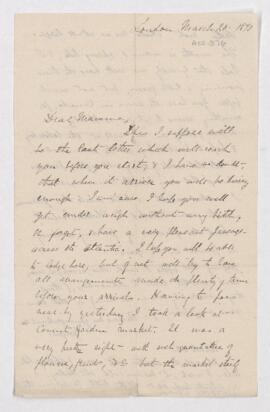 London March 20. 1871
Dear Mamma,
This I suppose will
be the last letter which will reach
you before you start, & I have no doubt
that when it arrives you will be busy
enough I am sure. I hope you will
get under weigh without very
& have a very pleasant passage
across the Atlantic. I hope you will be able
to lodge here, but if not will try to have
all arrangements made in plenty of time
before your arrival. Having to pass
near by yesterday I took a look at
Covent Garden market. It was a
very pretty sight - with such quantities of
flowers, fruits, &c but the market itself